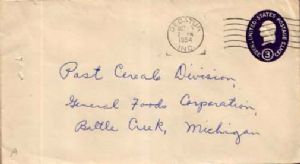 DECATUR
1954
IND.
UNITED STATES POSTAGE
3
Post Cereals Division,
General Foods Corporation,
Battle Creek, Michigan
A